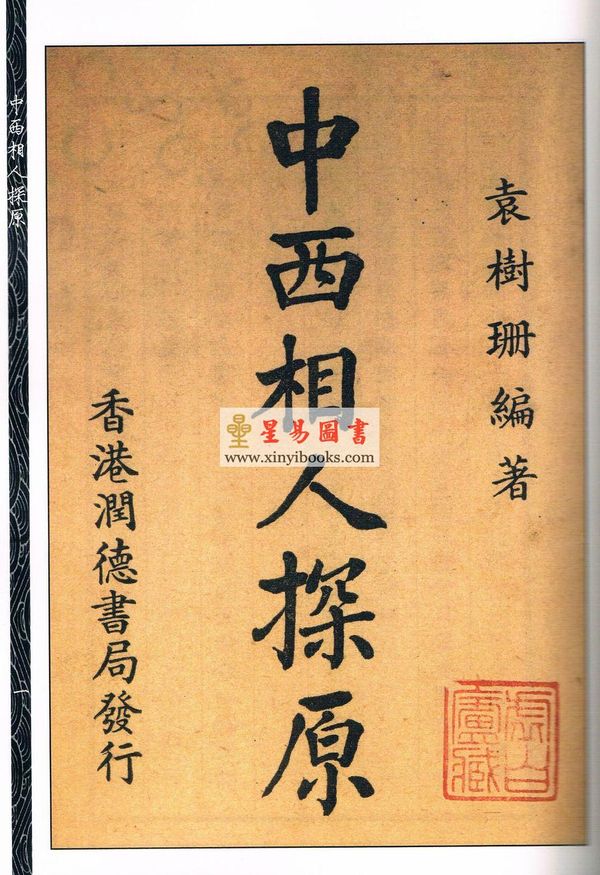 袁樹珊編著
中西相人探原
香港潤德書局發行
星易圖書
www.xinyibooks.com
中西相人探原
一